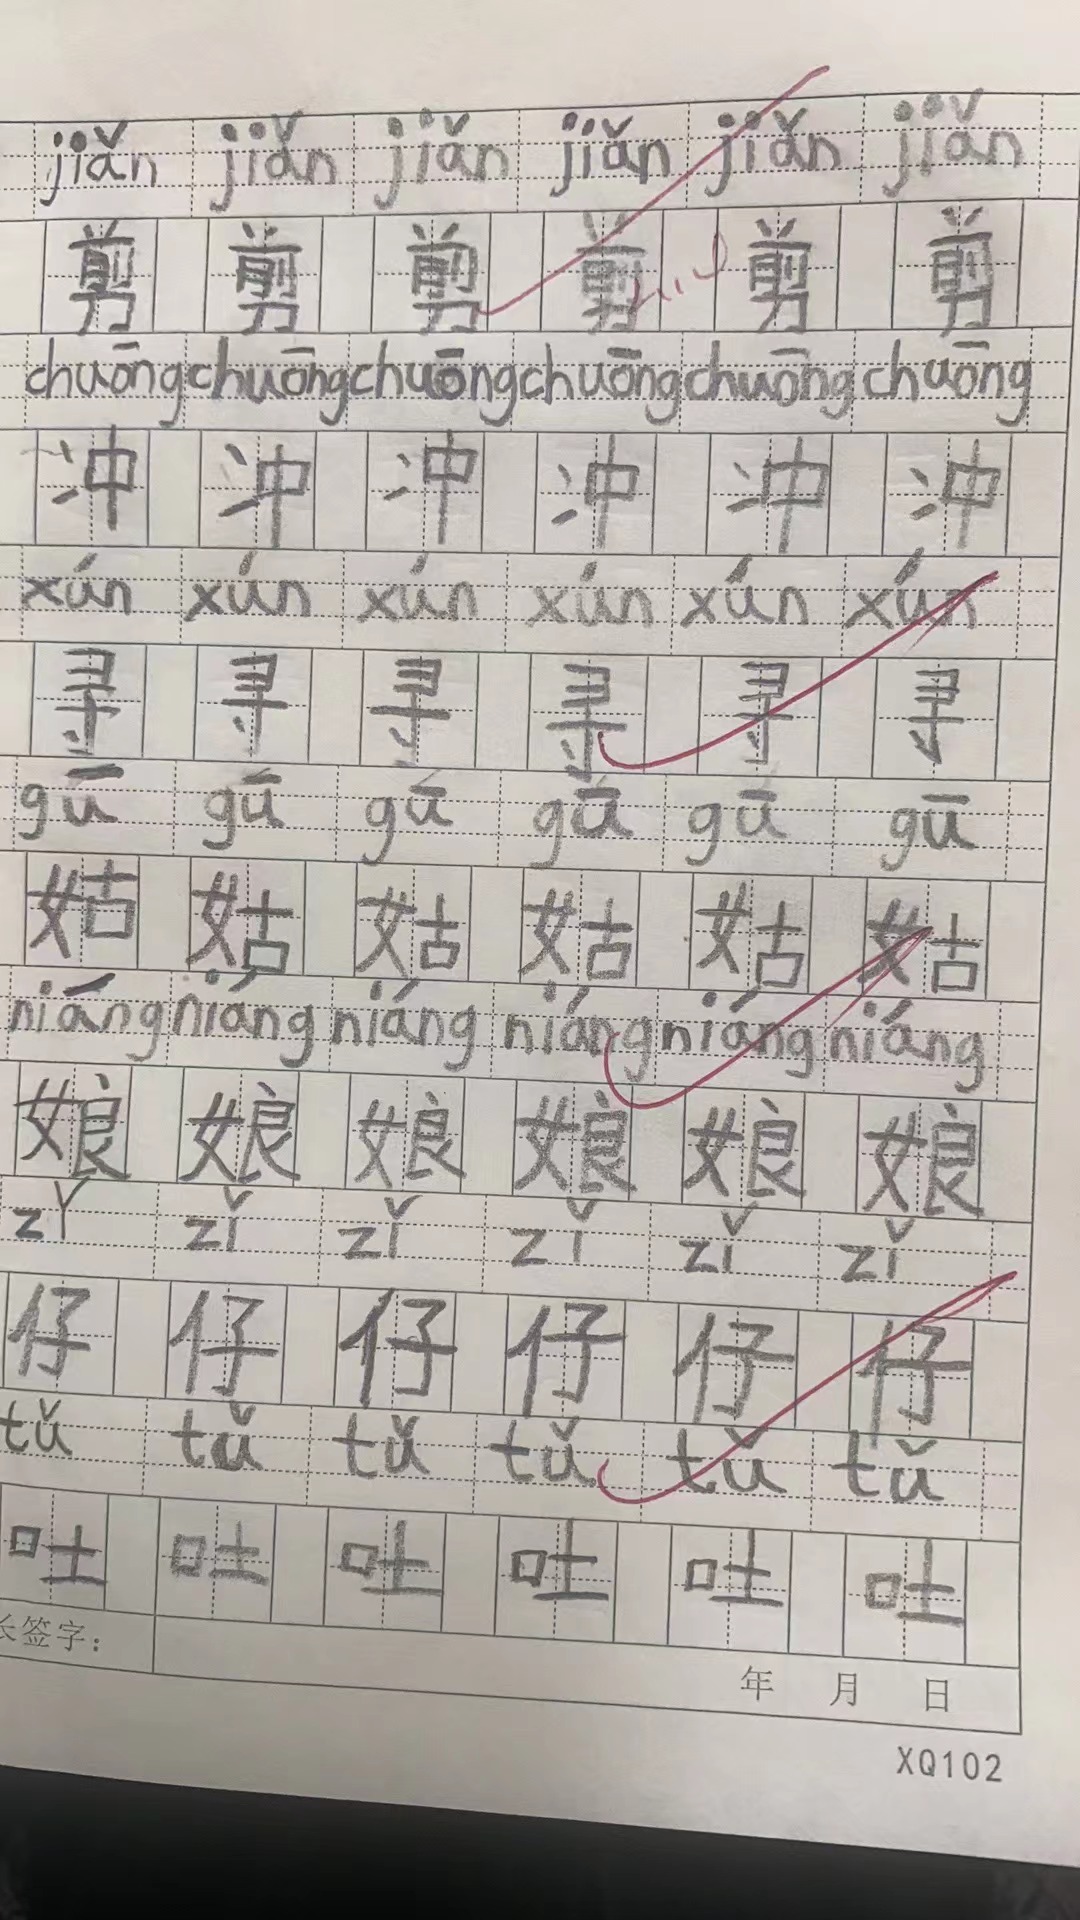 jiǎn jiǎn jiǎn jiǎn jiǎn jiǎn
剪 剪 剪 剪 剪 剪
chuōng chuōng chuōng chuōng chuōng chuōng
冲 冲 冲 冲 冲 冲
xún xún xún xún xún xún
寻 寻 寻 寻 寻 寻
gū gū gū gū gū gū
姑 姑 姑 姑 姑 姑
niáng niáng niáng niáng niáng niáng
娘 娘 娘 娘 娘 娘
zǐ zǐ zǐ zǐ zǐ zǐ
仔 仔 仔 仔 仔 仔
tǔ tǔ tǔ tǔ tǔ tǔ
吐 吐 吐 吐 吐 吐
长签字: 年 月 日
XQ102